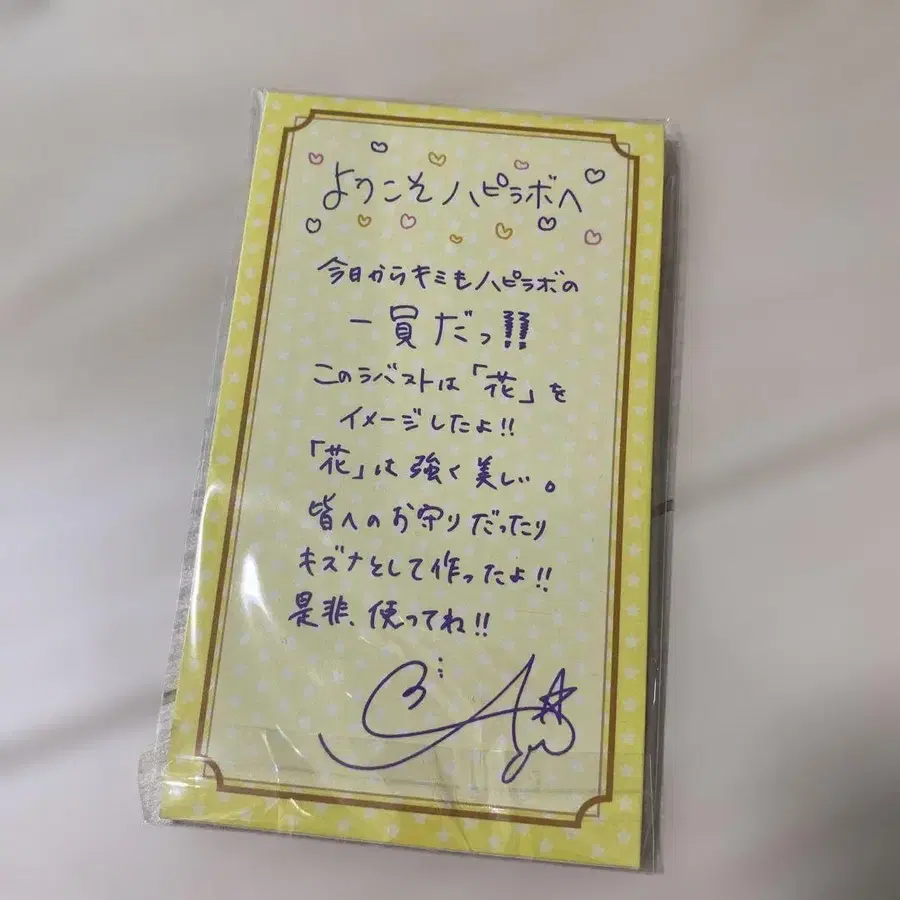 ようこそハピラボへ
今日からキミもハピラボの
一員だっ!!
このラバストは「花」を
イメージしたよ!!
「花」は強く美しい。
皆へのお守りだったり
キズナとして作ったよ!!
是非、使ってね!!